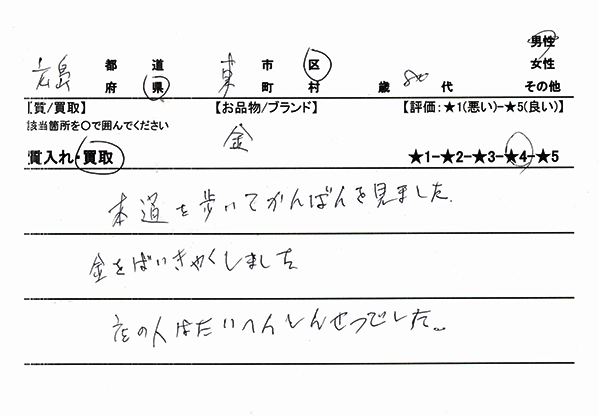 男性
広島 都 道 東 市 区 女性
府 県 町 村 歳 80 代 その他
[質/買取] 【お品物/ブランド】 【評価:★1(悪い)-★5(良い)】
該当箇所を〇で囲んでください 金
質入れ・買取 ★1-★2-★3-★4-★5
本道を歩いてかんばんを見ました。
金をばいきゃくしました
店の人はたいへんしんせつでした。